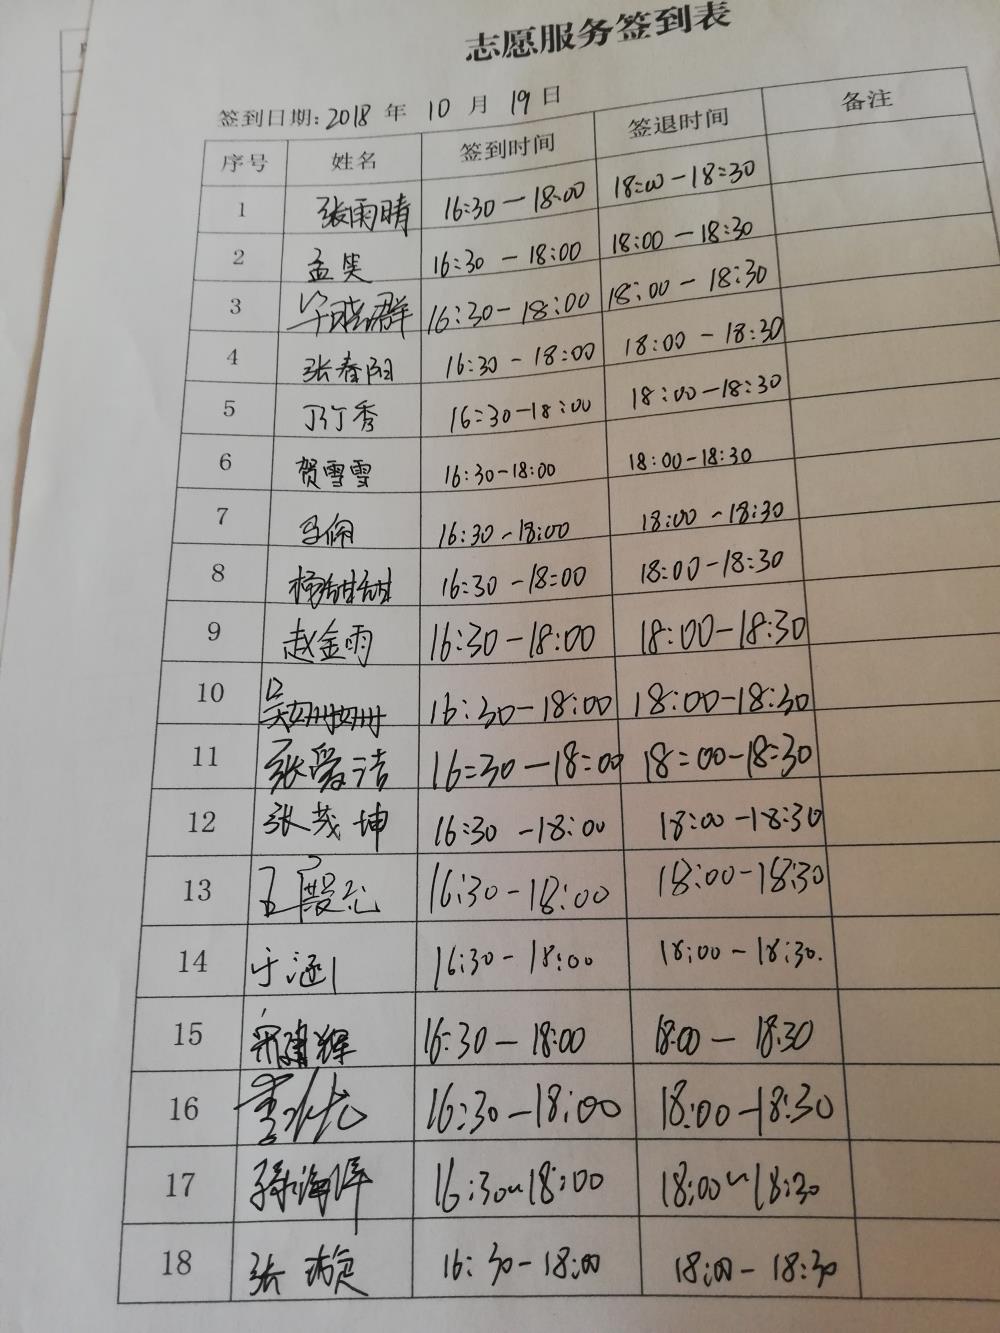 志愿服务签到表
签到日期: 2018 年 10 月 19 日
序号 姓名 签到时间 签退时间 备注
1 张雨晴 16:30-18:00 18:00-18:30
2 孟昊 16:30-18:00 18:00-18:30
3 晓群 16:30-18:00 18:00-18:30
4 张春阳 16:30-18:00 18:00-18:30
5 秀 16:30-18:00 18:00-18:30
6 贺雪雪 16:30-18:00 18:00-18:30
7 马佩 16:30-18:00 18:00-18:30
8 杨甜甜 16:30-18:00 18:00-18:30
9 赵金雨 16:30-18:00 18:00-18:30
10 吴姗姗 16:30-18:00 18:00-18:30
11 张爱洁 16:30-18:00 18:00-18:30
12 张茂坤 16:30-18:00 18:00-18:30
13 16:30-18:00 18:00-18:30
14 于涵 16:30-18:00 18:00-18:30.
15 建辉 16:30-18:00 18:00-18:30
16 16:30-18:00 18:00-18:30
17 孙海洋 16:30~18:00 18:00~18:30
18 张璇 16:30-18:00 18:00-18:30